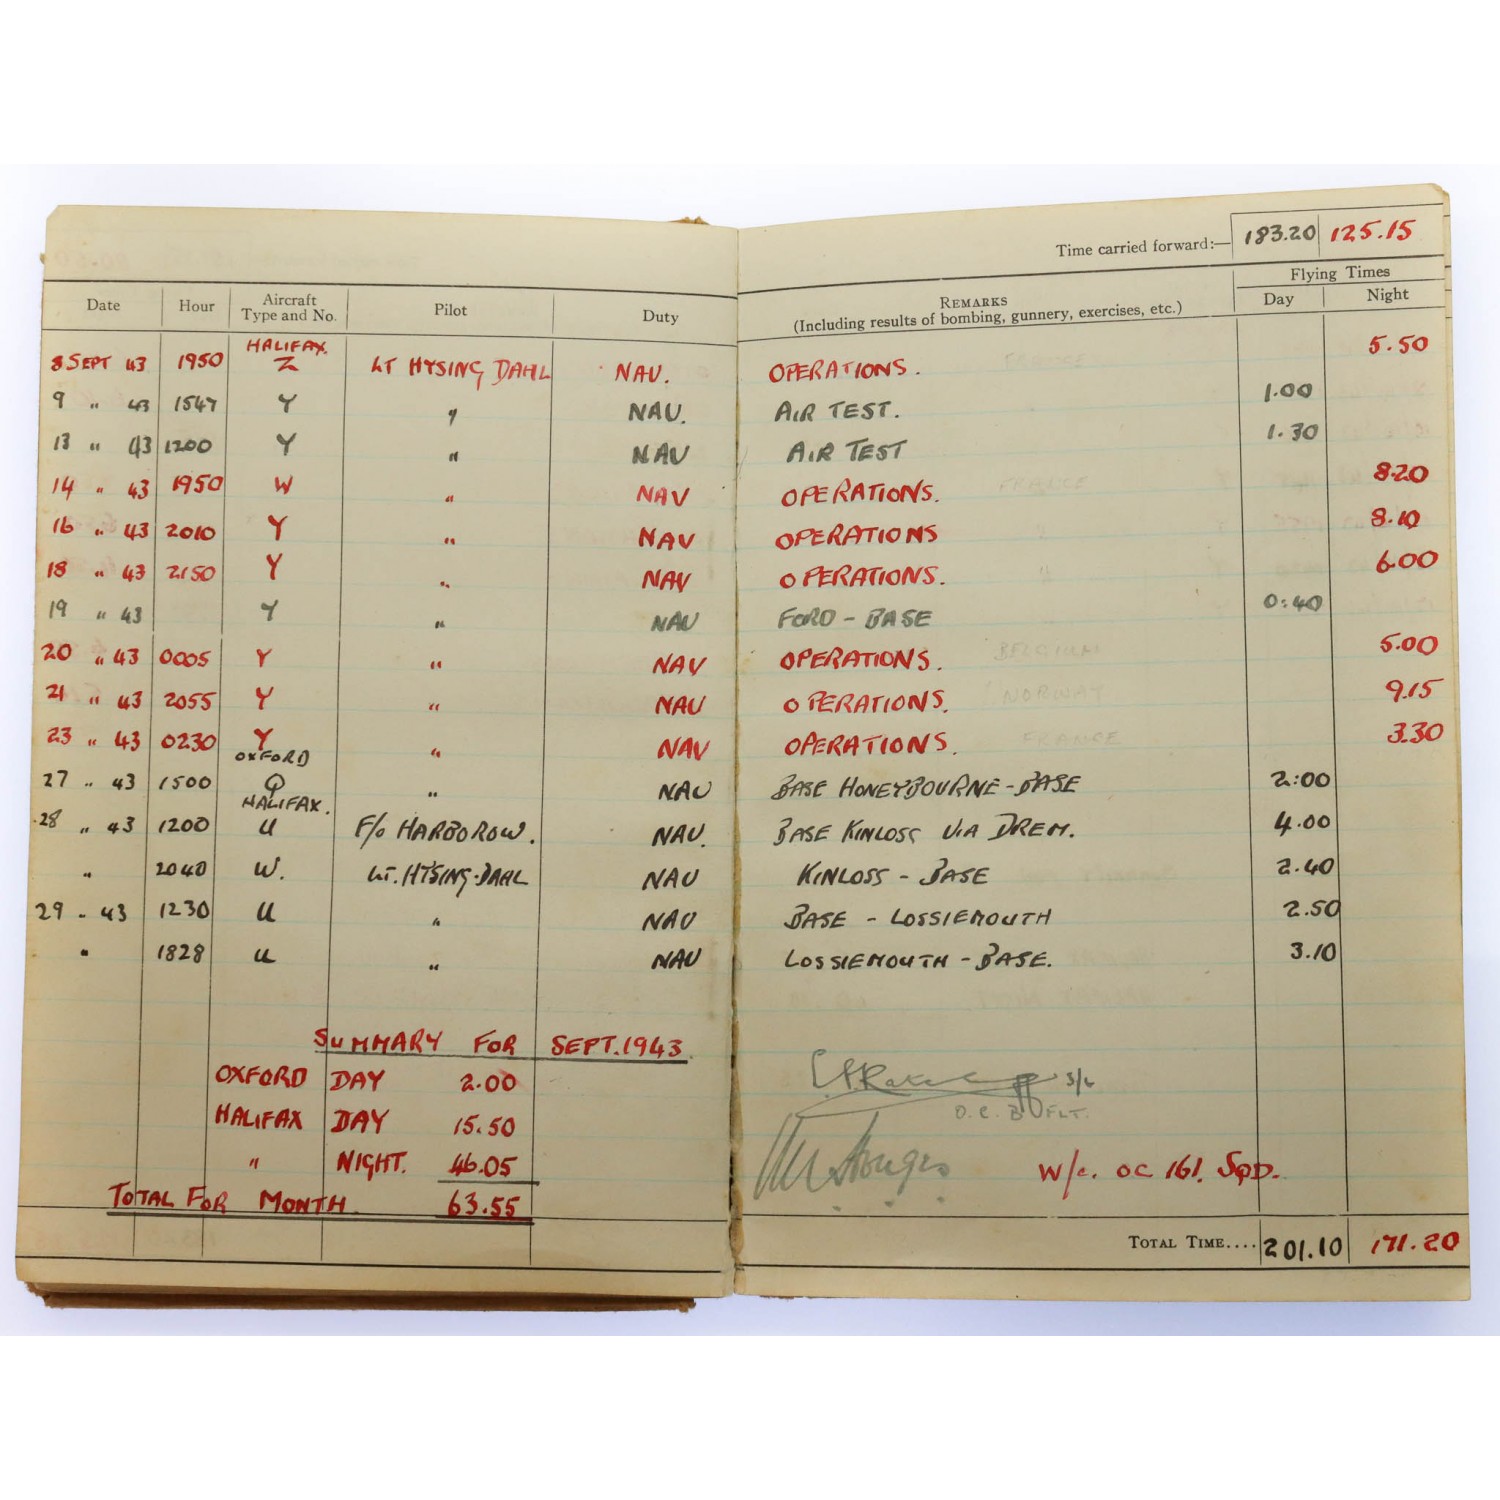 Time carried forward:— 183.20 125.15
Date Hour Aircraft Type and No. Pilot Duty REMARKS (Including results of bombing, gunnery, exercises, etc.) Flying Times Day Night
8 SEPT 43 1950 HALIFAX. Z LT HYSING DAHL NAV. OPERATIONS. FRANCE 5.50
9 " 43 1547 Y " NAV. AIR TEST. 1.00
13 " 43 1200 Y " NAV AIR TEST 1.30
14 " 43 1950 W " NAV OPERATIONS. FRANCE 8.20
16 " 43 2010 Y " NAV OPERATIONS " 8.10
18 " 43 2150 Y " NAV OPERATIONS. " 6.00
19 " 43 Y " NAV FORD - BASE 0:40
20 " 43 0005 Y " NAV OPERATIONS. BELGIUM 5.00
21 " 43 2055 Y " NAV OPERATIONS. NORWAY 9.15
23 " 43 0230 Y " NAV OPERATIONS. FRANCE 3.30
27 " 43 1500 OXFORD Q " NAV BASE HONEYBOURNE - BASE 2:00
28 " 43 1200 HALIFAX. U F/O HARBOROW. NAV. BASE KINLOSS VIA DREM. 4.00
" 2040 W. LT. HYSING-DAHL NAV KINLOSS - BASE 2.40
29 - 43 1230 U " NAV BASE - LOSSIEMOUTH 2.50
" 1828 U " NAV LOSSIEMOUTH - BASE. 3.10
SUMMARY FOR SEPT. 1943
OXFORD DAY 2.00
HALIFAX DAY 15.50
" NIGHT. 46.05
TOTAL FOR MONTH 63.55
S/L
O.C. B FLT.
W/C. OC 161 SQD.
TOTAL TIME.... 201.10 171.20